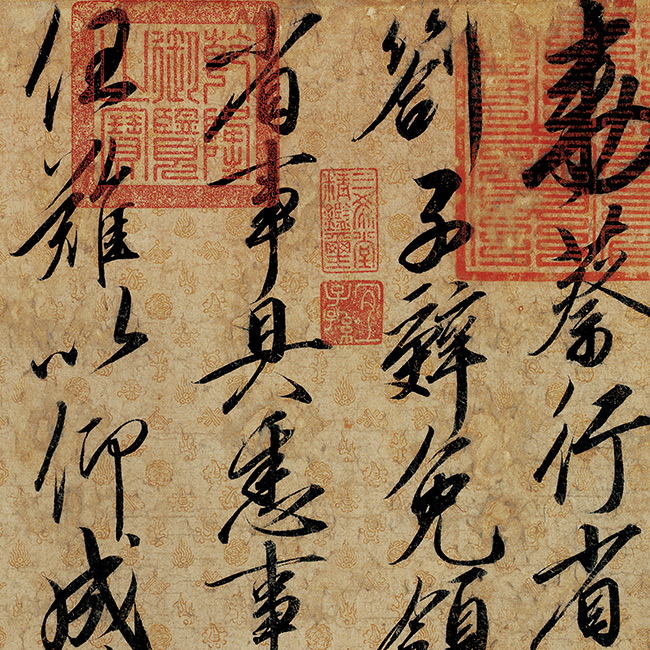 勅蔡行省
劄子辭免領
三希堂精鑑璽
宜子孫
省事具悉事
乾隆御覽之寶
任難以仰成